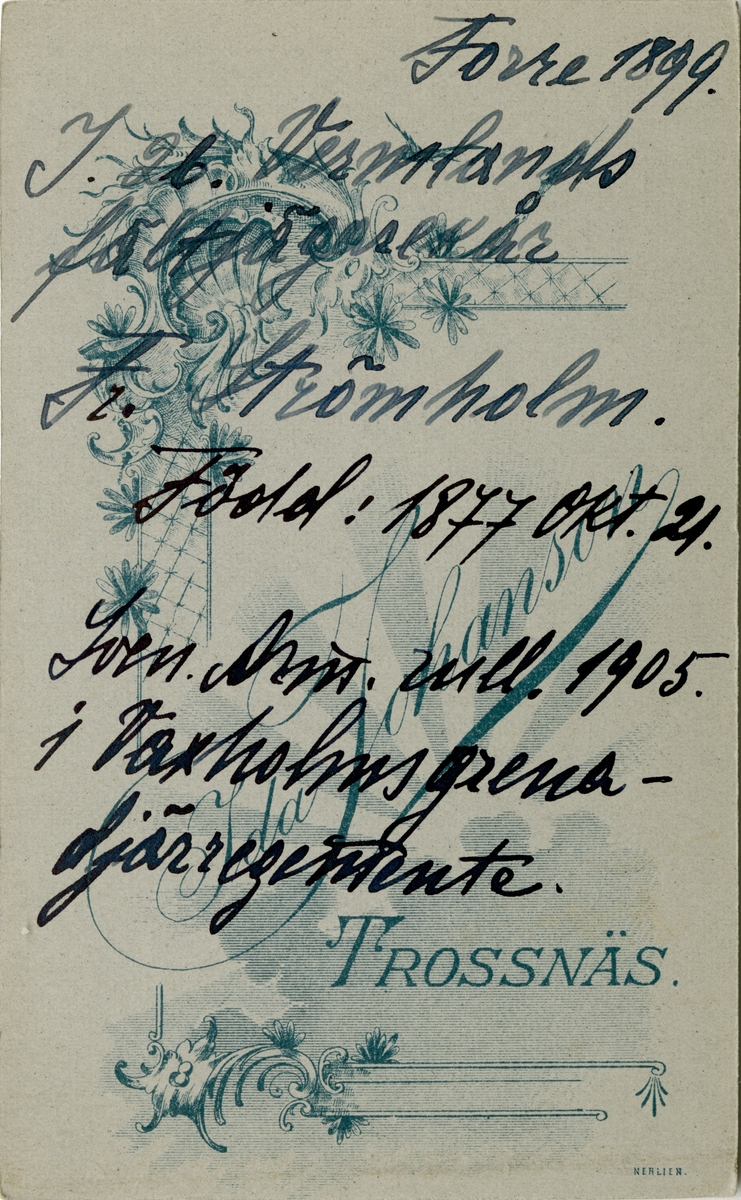 Förre 1899.
I. 26. Vermlands
fältjägarekår
Fr. Strömholm.
Född: 1877 Okt. 21.
Sven. Arm. rull. 1905.
i Vaxholmsgrena-
djärregemente.
Ida Johanson
TROSSNÄS.
NERLIEN.